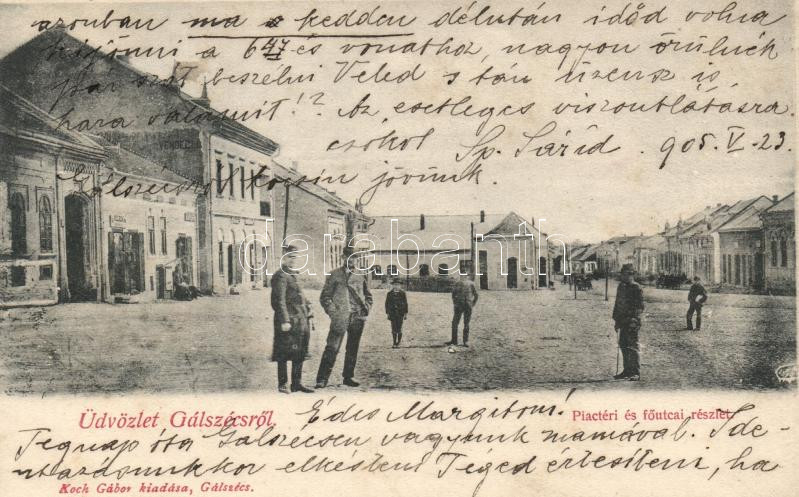 azonban ma kedden délután időd volna
kijönni a 6 47 és vonathoz, nagyon örülnék
pár szót beszélni Veled s tán üzensz is
haza valamit!? Az esetleges viszontlátásra
csókol Sp. Sárid. 905. V. 23.
Gálszécsről kocsin jövünk.
VENDÉGLŐ
darabanth.com
Üdvözlet Gálszécsről.
Piactéri és főutcai részlet.
Édes Margitom!
Tegnap óta Gálszécsen vagyunk mamával. Ide-
utazásunkkor elkéstem Téged értesíteni, ha
Koch Gábor kiadása, Gálszécs.